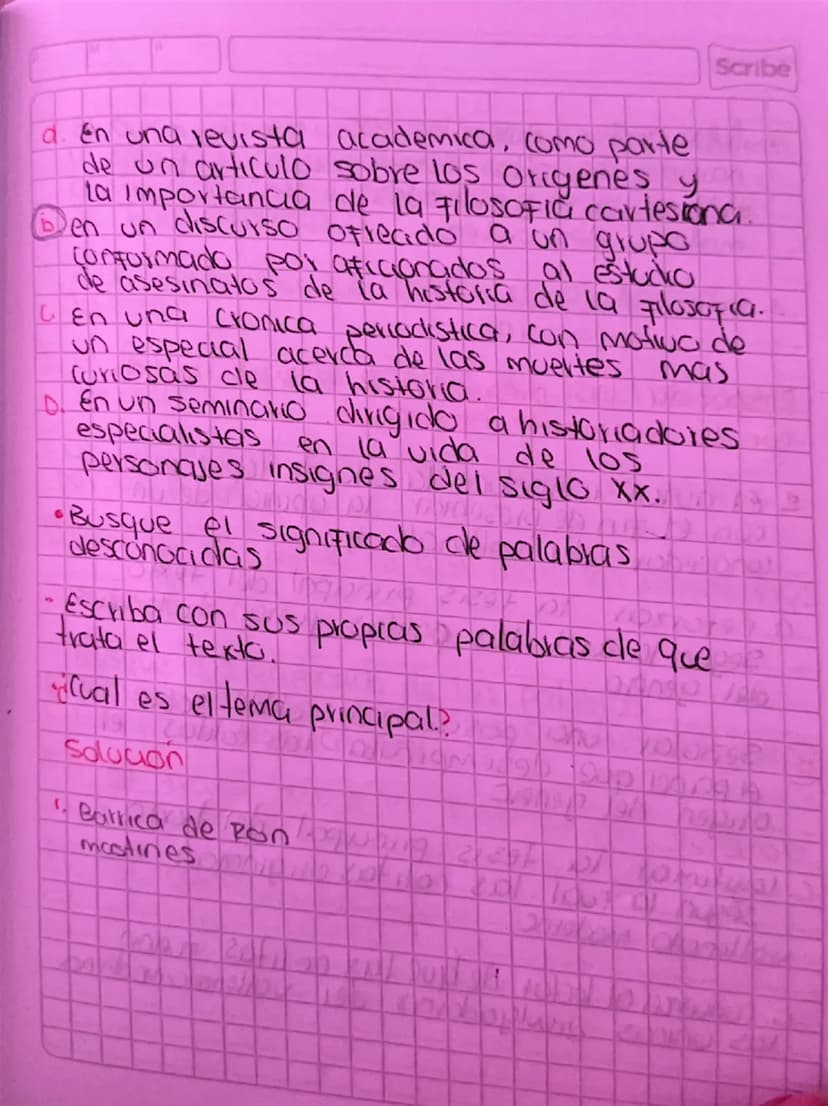 Scribe
a. En una revista academica, como parte
de un articulo sobre los origenes y
la importancia de la filosofia cartesiana.
b en un discurso ofrecido a un grupo
conformado por aficionados al estudio
de asesinatos de la historia de la filosofia.
C En una cronica periodistica, con motivo de
un especial acerca de las muertes mas
curiosas de la historia.
D. En un seminario dirigido a historiadores
especialistas en la vida de los
personajes insignes del siglo XX.
• Busque el significado de palabras
desconocidas
- Escriba con sus propias palabras de que
trata el texto.
¿Cual es el tema principal?
Solucion
1. Barrica de Ron
mastines